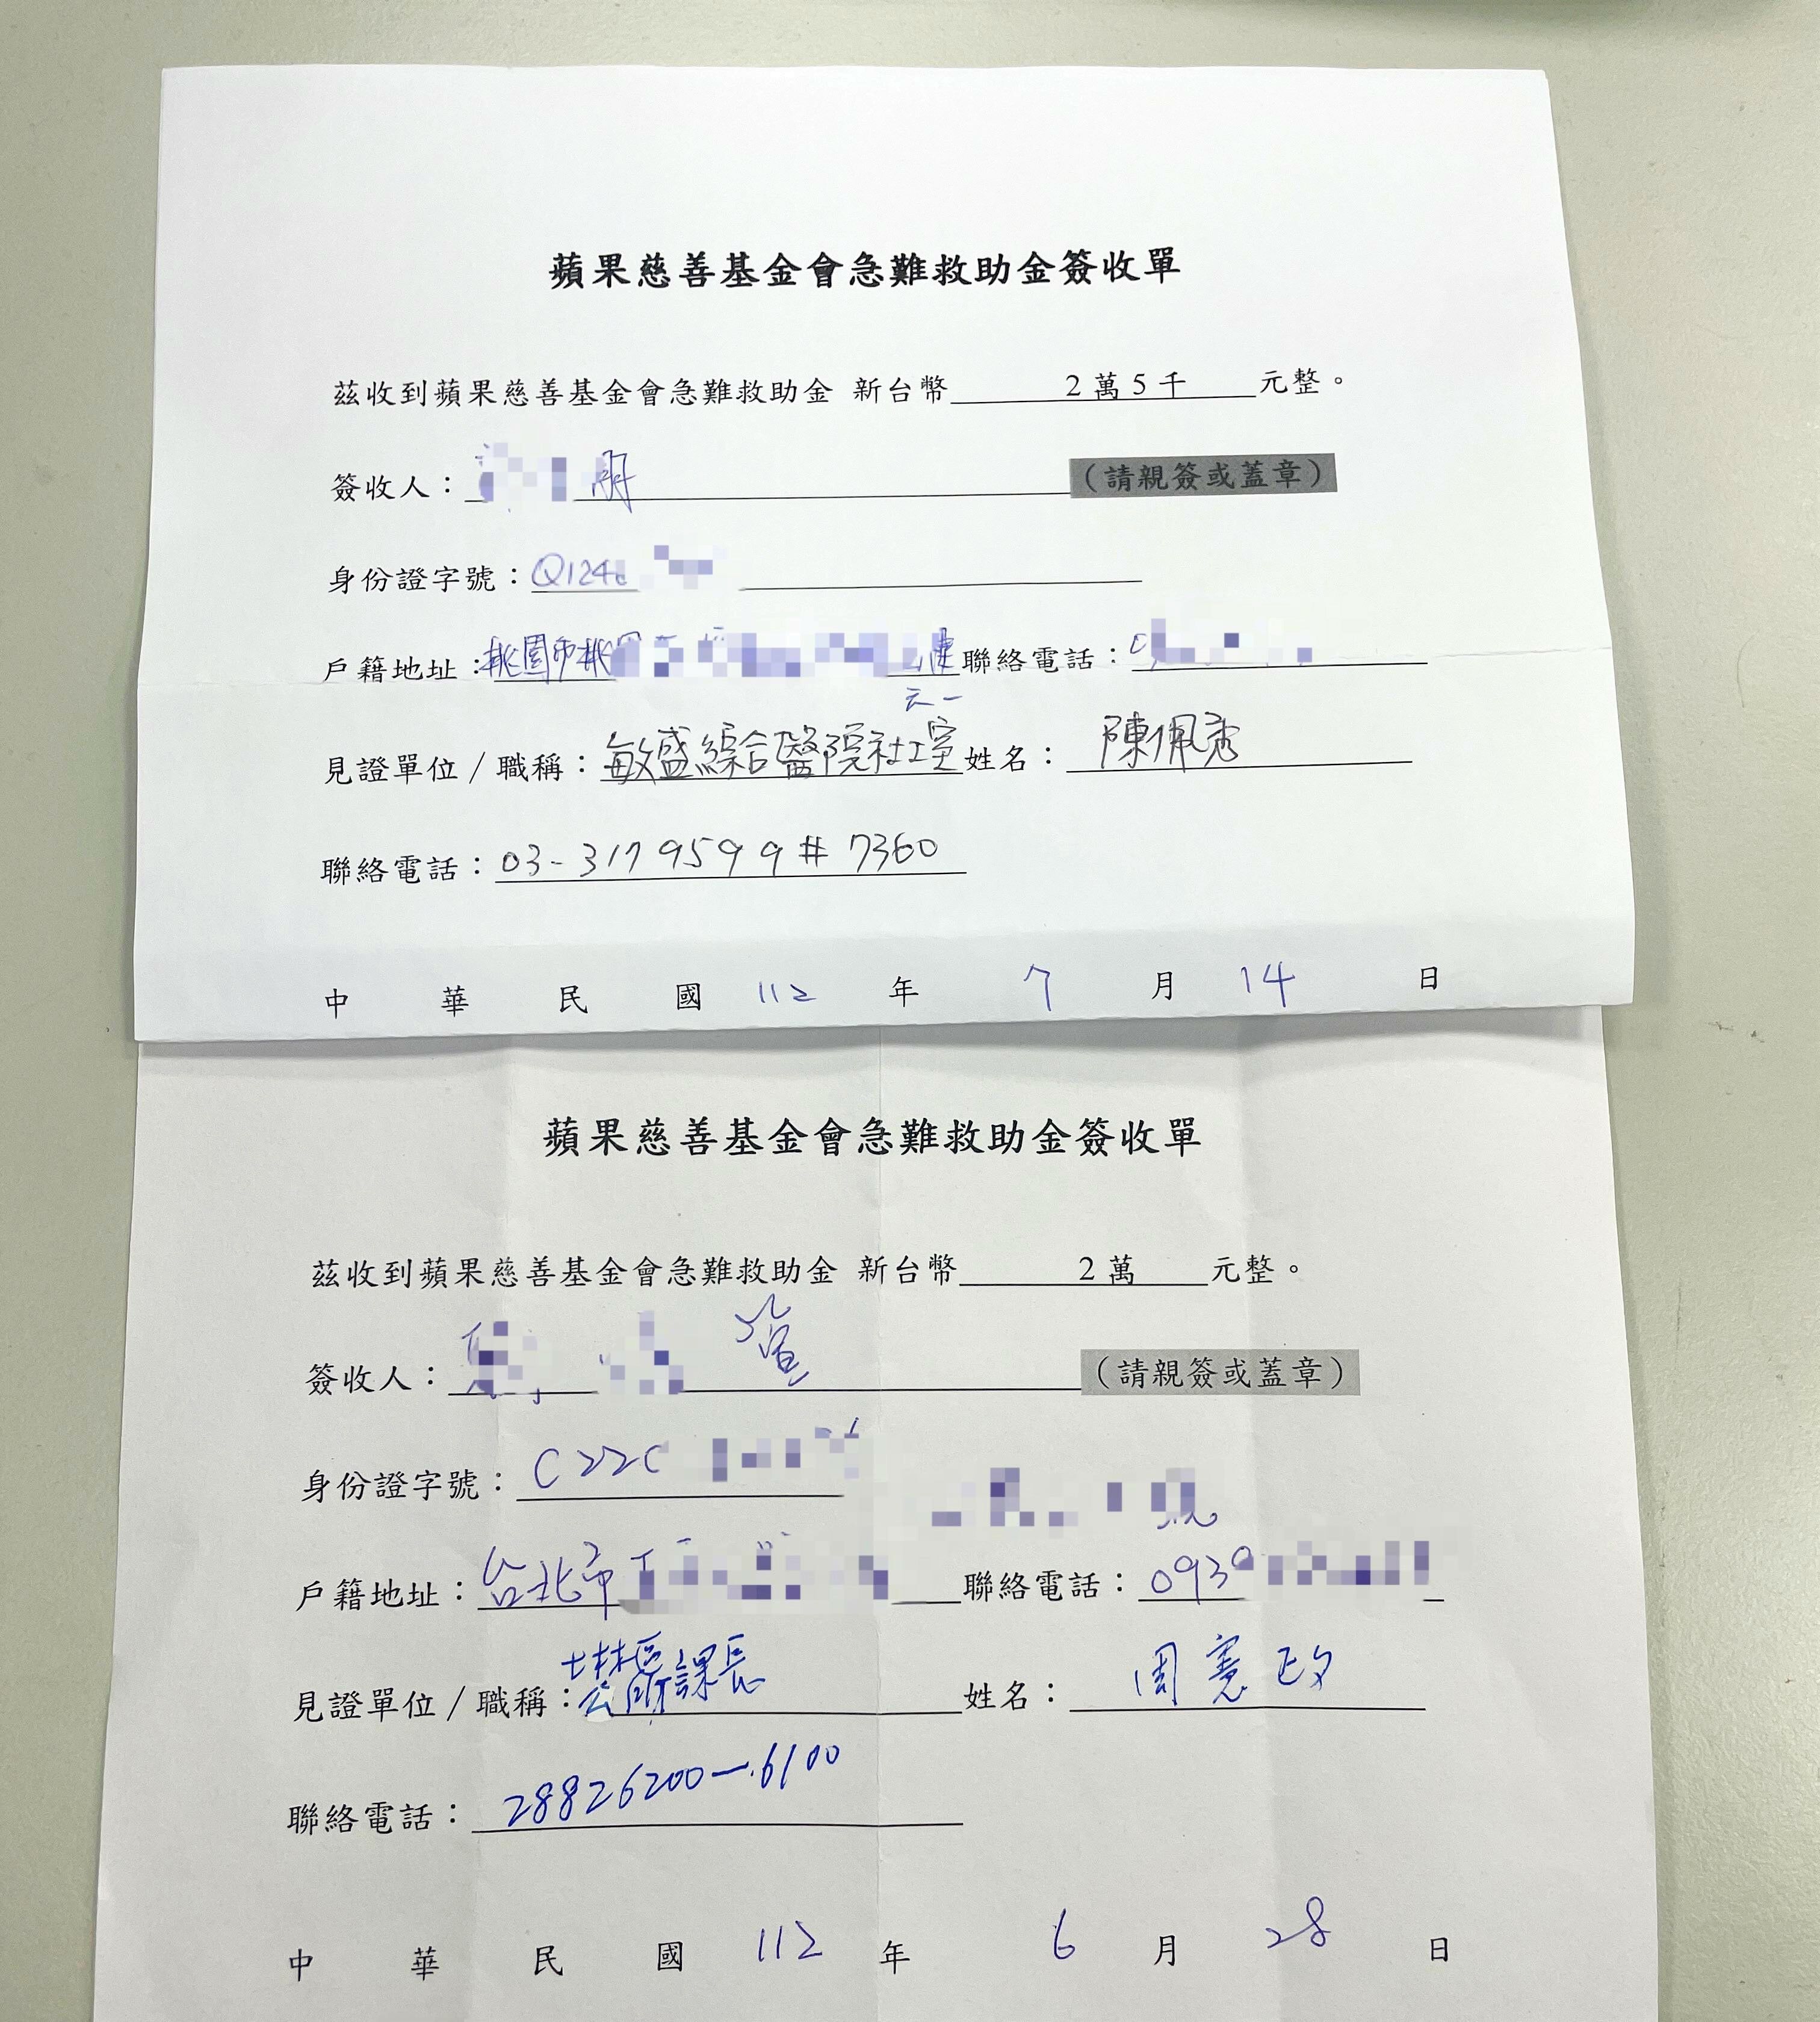 蘋果慈善基金會急難救助金簽收單
茲收到蘋果慈善基金會急難救助金 新台幣 2萬5千 元整。
簽收人： （請親簽或蓋章）
身份證字號：Q124
戶籍地址：桃園市桃 聯絡電話：
見證單位／職稱：敏盛綜合醫院社工室 姓名：陳佩秀
聯絡電話：03-3179599#7360
中華民國 112 年 7 月 14 日
蘋果慈善基金會急難救助金簽收單
茲收到蘋果慈善基金會急難救助金 新台幣 2萬 元整。
簽收人： （請親簽或蓋章）
身份證字號：C22
戶籍地址：台北市 聯絡電話：093
見證單位／職稱：士林區公所課長 姓名：周憲政
聯絡電話：28826200-6100
中華民國 112 年 6 月 28 日